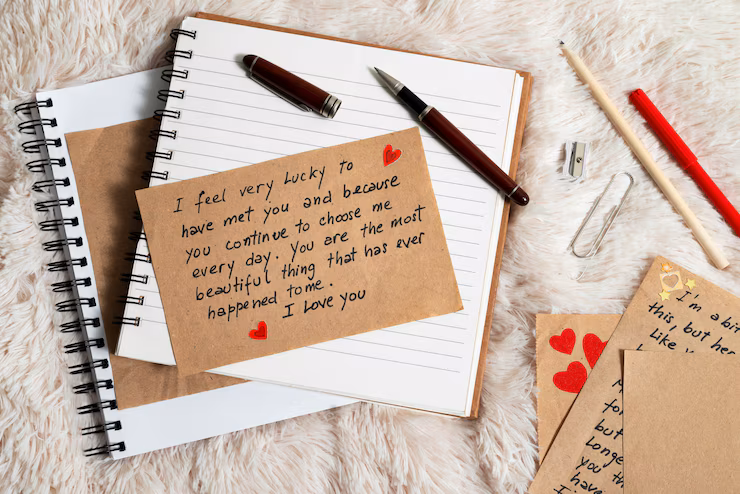 I feel very Lucky to
have met you and because
you continue to choose me
every day. You are the most
beautiful thing that has ever
happened to me.
I Love you
I'm a bit
this, but her
Like
for
but
Longe
you th
have
I'